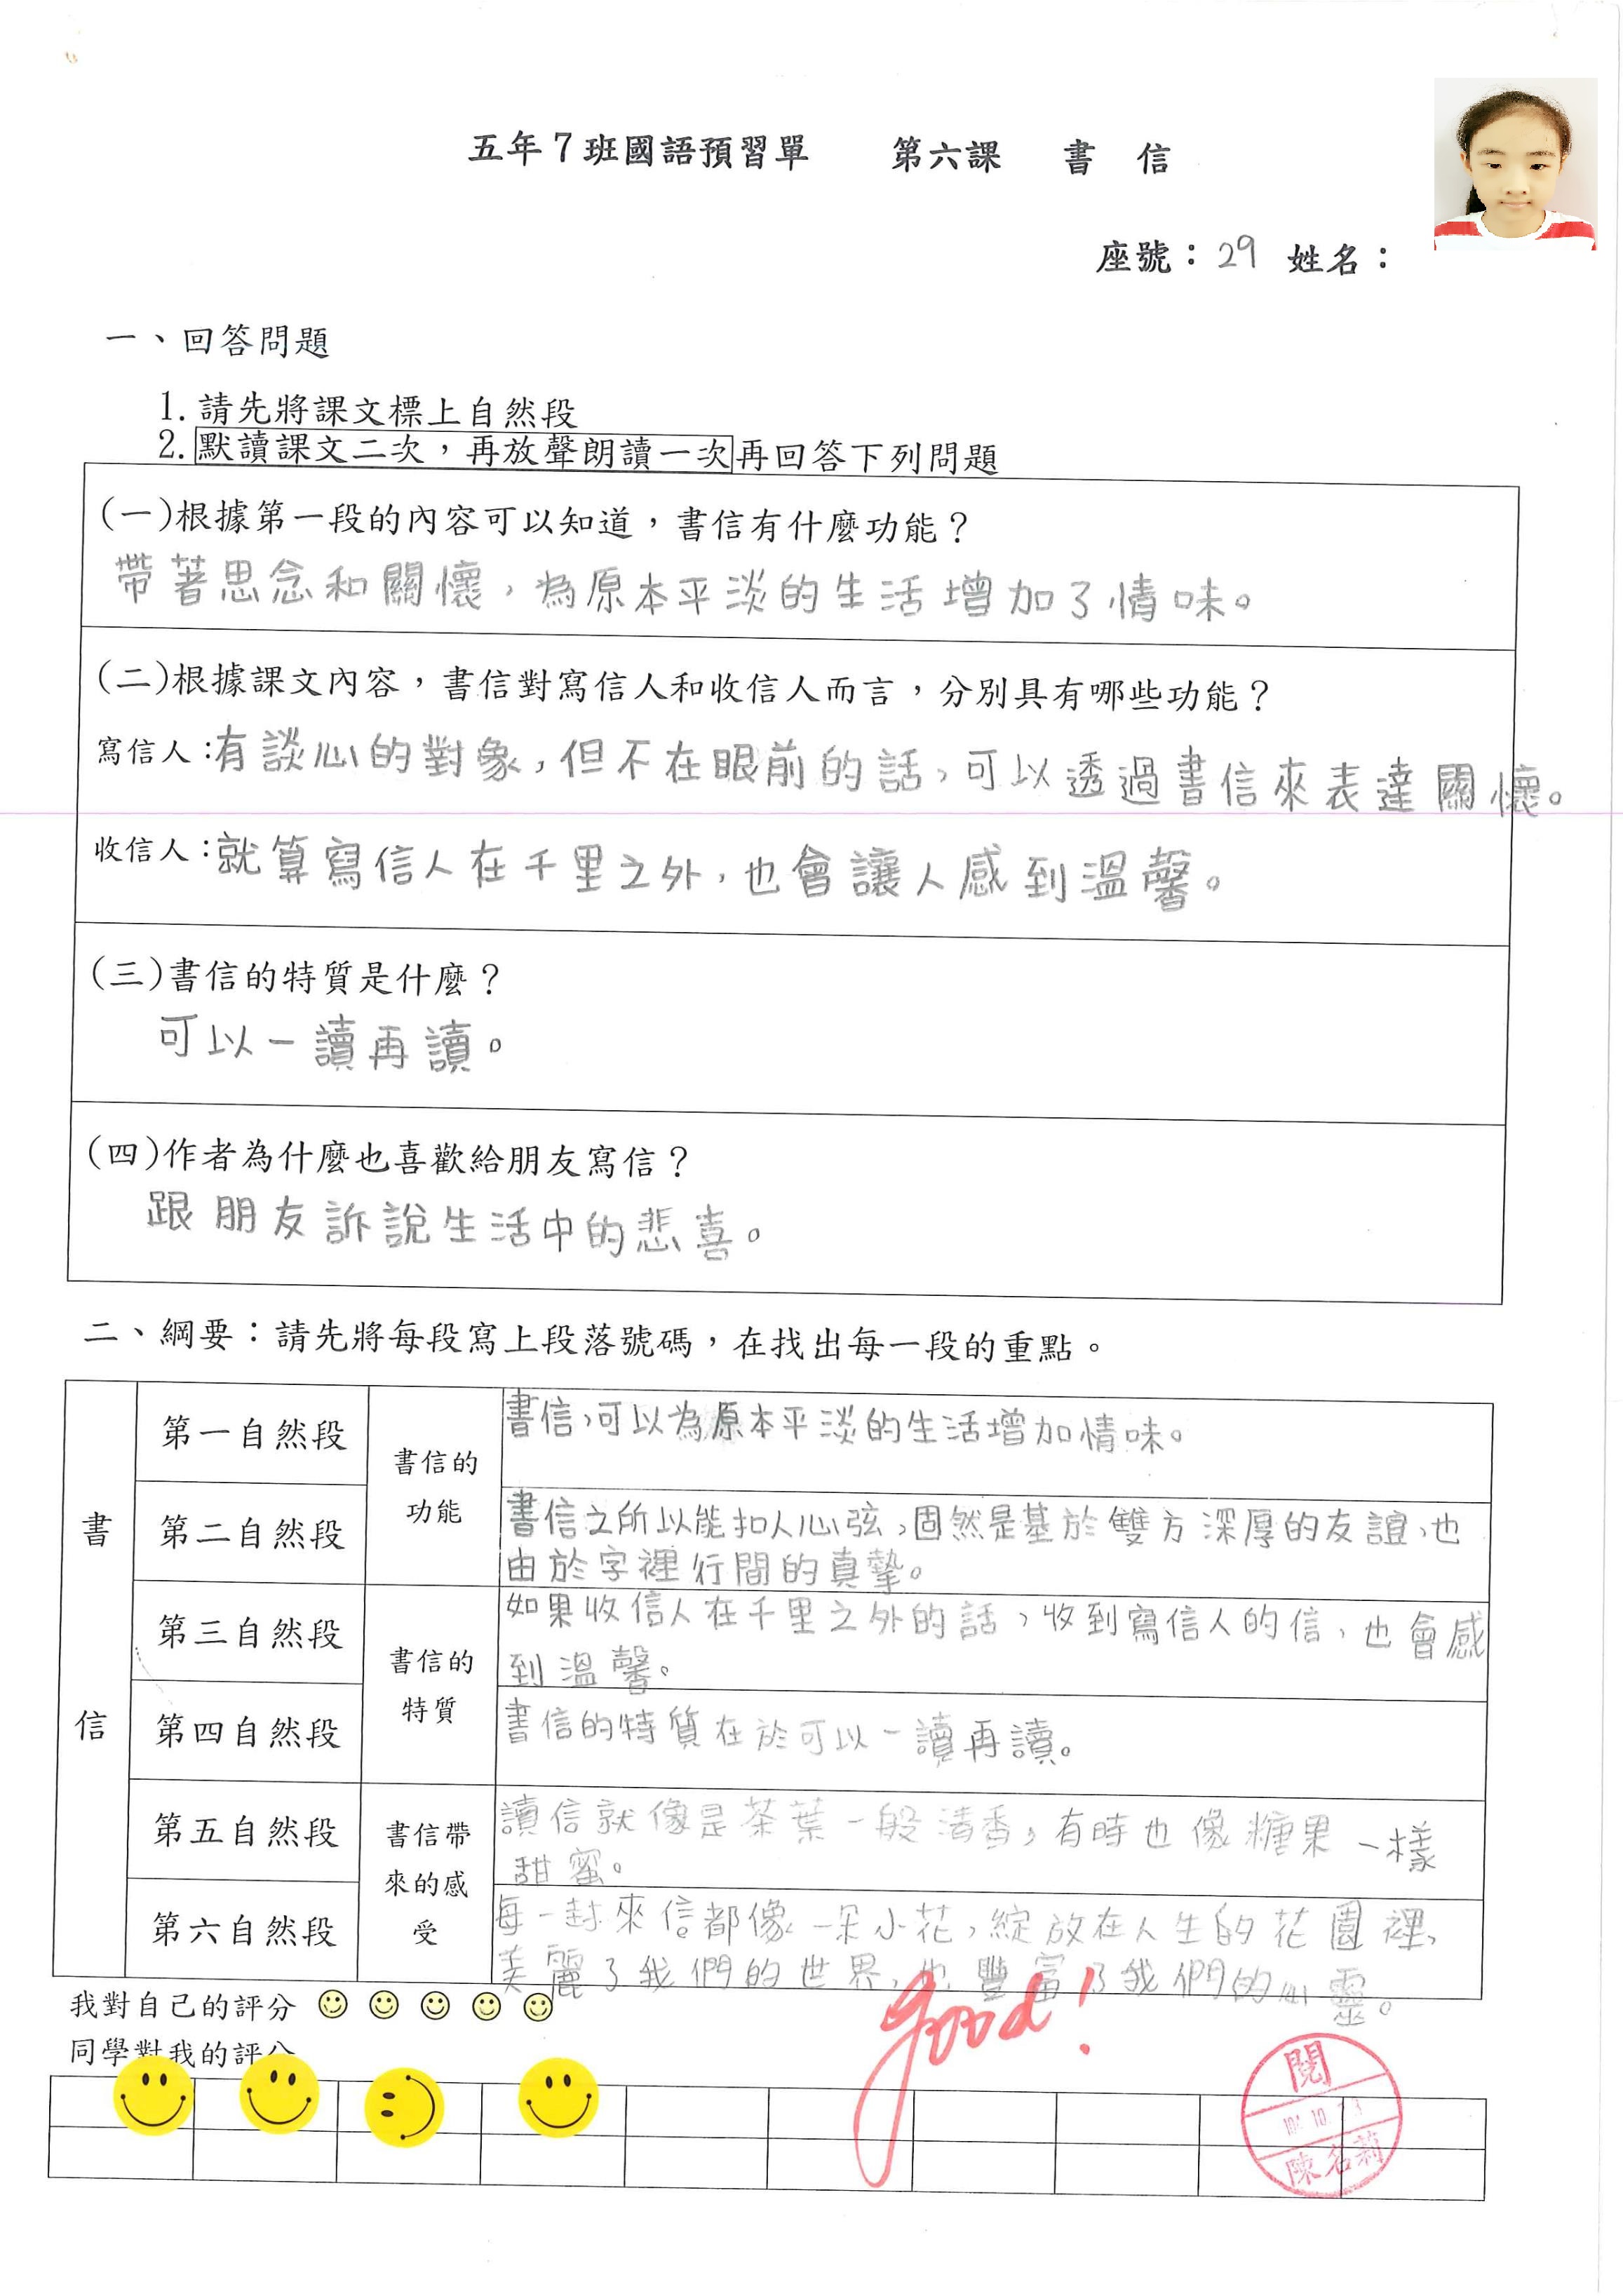 五年7班國語預習單　第六課　書信
座號：29 姓名：
一、回答問題
1. 請先將課文標上自然段
2. 默讀課文二次，再放聲朗讀一次再回答下列問題
(一)根據第一段的內容可以知道，書信有什麼功能？
帶著思念和關懷，為原本平淡的生活增加了情味。
(二)根據課文內容，書信對寫信人和收信人而言，分別具有哪些功能？
寫信人：有談心的對象，但不在眼前的話，可以透過書信來表達關懷。
收信人：就算寫信人在千里之外，也會讓人感到溫馨。
(三)書信的特質是什麼？
可以一讀再讀。
(四)作者為什麼也喜歡給朋友寫信？
跟朋友訴說生活中的悲喜。
二、綱要：請先將每段寫上段落號碼，在找出每一段的重點。
書信
第一自然段
書信的功能
書信，可以為原本平淡的生活增加情味。
第二自然段
書信之所以能扣人心弦，固然是基於雙方深厚的友誼，也
由於字裡行間的真摯。
第三自然段
書信的特質
如果收信人在千里之外的話，收到寫信人的信，也會感
到溫馨。
第四自然段
書信的特質在於可以一讀再讀。
第五自然段
書信帶來的感受
讀信就像是茶葉一般清香，有時也像糖果一樣
甜蜜。
第六自然段
每一封來信都像一朵小花，綻放在人生的花園裡，
美麗了我們的世界，也豐富了我們的心靈。
我對自己的評分
同學對我的評分
good!
閱
陳名莉